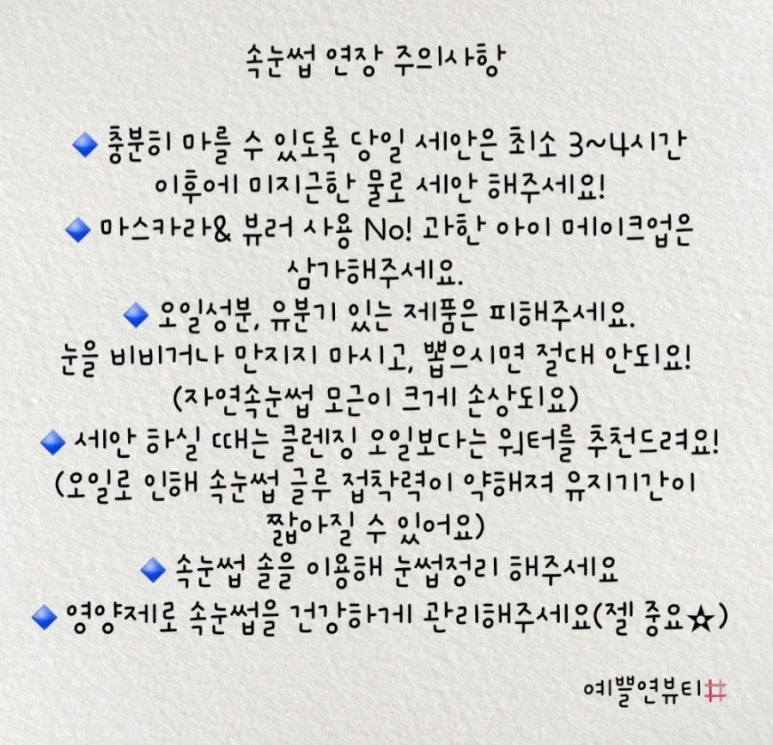 속눈썹 연장 주의사항
🔹 충분히 마를 수 있도록 당일 세안은 최소 3~4시간
이후에 미지근한 물로 세안 해주세요!
🔹 마스카라& 뷰러 사용 No! 과한 아이 메이크업은
삼가해주세요.
🔹 오일성분, 유분기 있는 제품은 피해주세요.
눈을 비비거나 만지지 마시고, 뽑으시면 절대 안되요!
(자연속눈썹 모근이 크게 손상되요)
🔹 세안 하실 때는 클렌징 오일보다는 워터를 추천드려요!
(오일로 인해 속눈썹 글루 접착력이 약해져 유지기간이
짧아질 수 있어요)
🔹 속눈썹 솔을 이용해 눈썹정리 해주세요
🔹 영양제로 속눈썹을 건강하게 관리해주세요(젤 중요☆)
예쁠연뷰티#